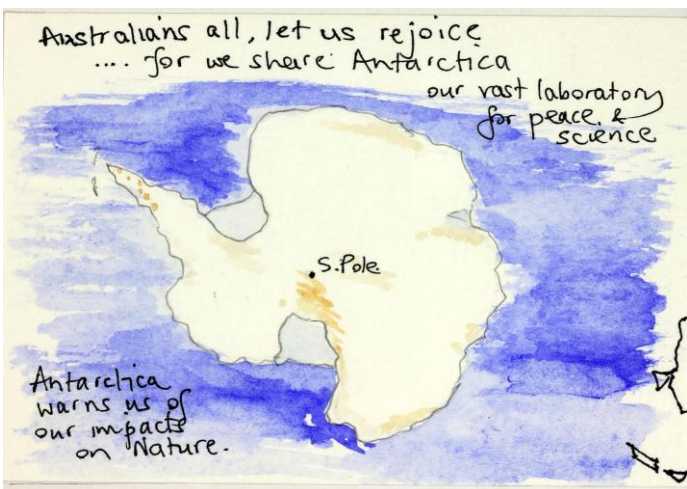 Australians all, let us rejoice
.... for we share Antarctica
our vast laboratory
for peace &
science
S.Pole
Antarctica
warns us of
our impacts
on Nature.